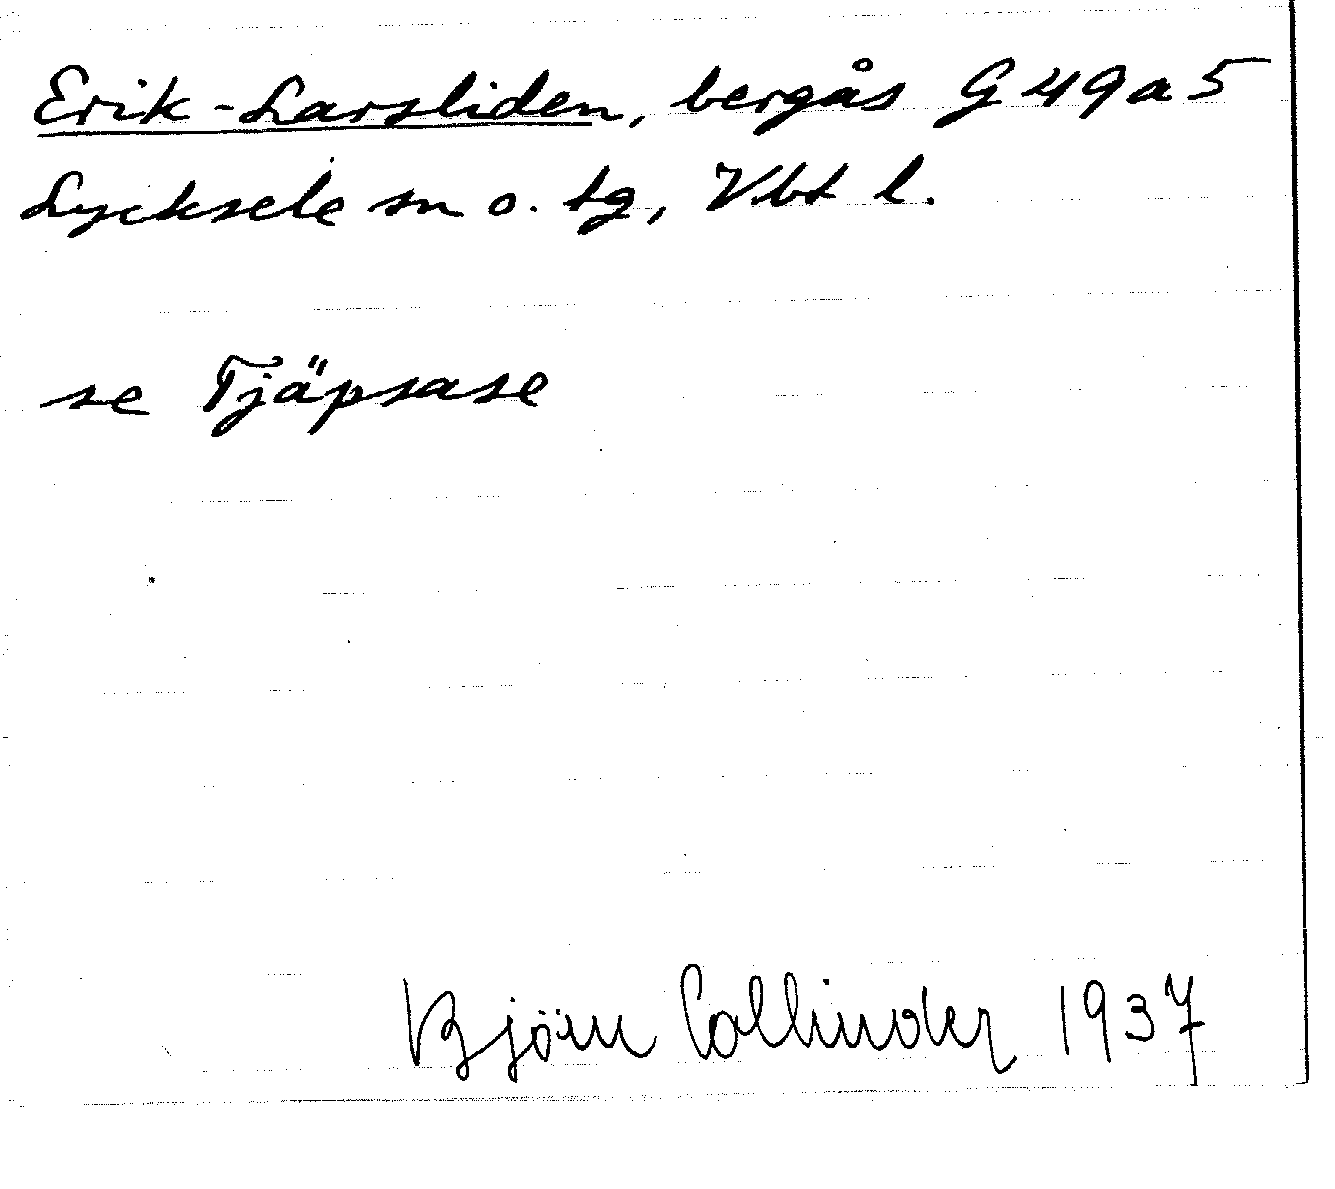 Erik-Larsliden, bergås G 49 a 5
Lycksele sn o. tg, Vbt l.
se Tjäpsase
Björn Collinder 1937